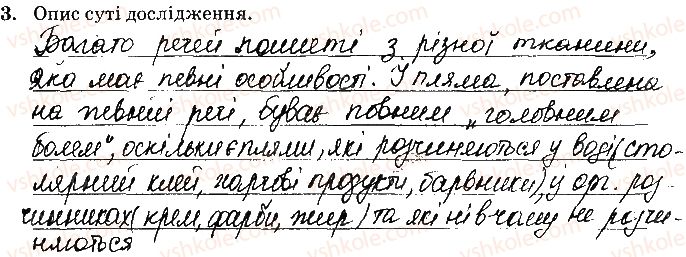 3. Опис суті дослідження.
Багато речей пошиті з різної тканини,
яка має певні особливості. І пляма, поставлена
на певній речі, буває повним „головним
болем", оскільки є плями, які розчиняються у воді (сто-
лярний клей, харчові продукти, барвники), у орг. роз-
чинниках (крем, фарби, жир) та які ні в чому не розчи-
няються